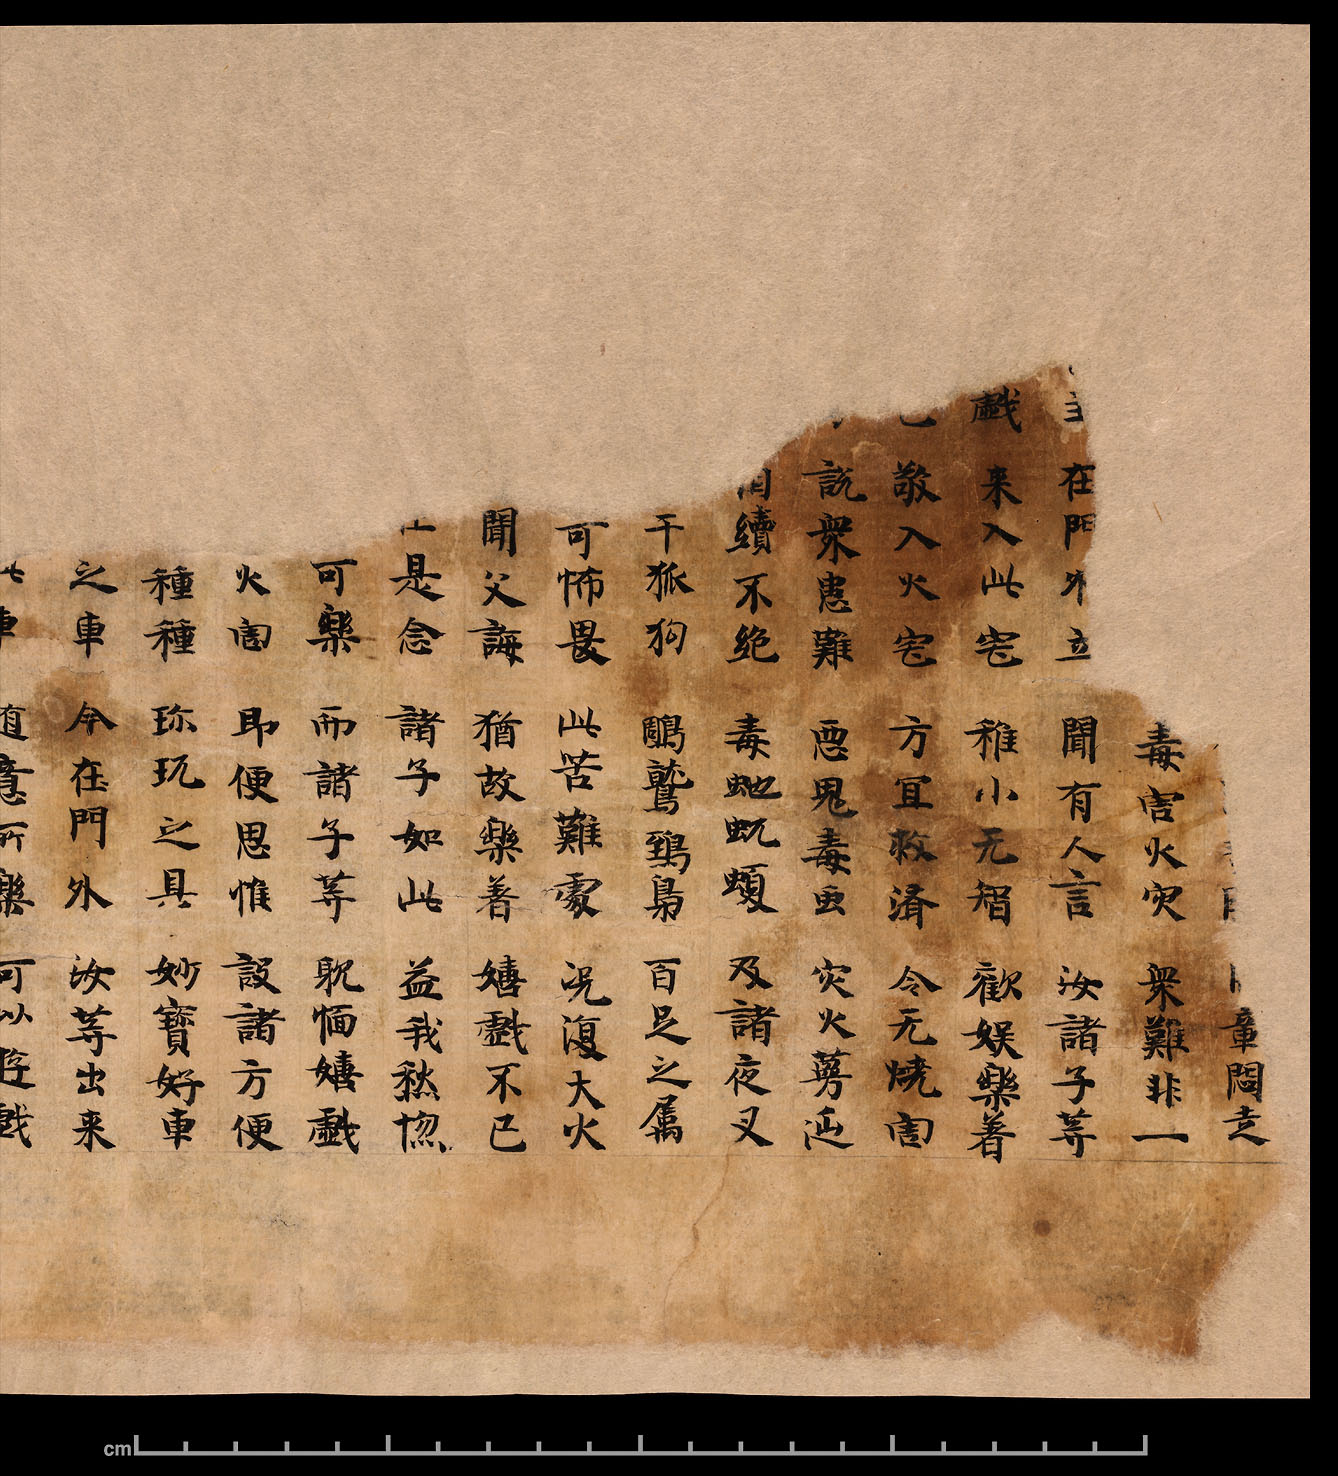 章悶走
毒害火灾 衆難非一
在門外立 聞有人言 汝諸子等
戲 来入此宅 稚小无智 歡娱樂著
敬入火宅 方冝救濟 令无燒害
說衆患難 惡鬼毒虫 灾火蔓延
續不絶 毒虵蚖蝮 及諸夜叉
干狐狗 鵰鷲鵄梟 百足之属
可怖畏 此苦難處 况復大火
聞父誨 猶故樂著 嬉戲不已
是念 諸子如此 益我愁惱
可樂 而諸子等 躭湎嬉戲
火害 即便思惟 設諸方便
種種 珎玩之具 妙寳好車
之車 今在門外 汝等出来
車 隨意所樂 可以遊戲